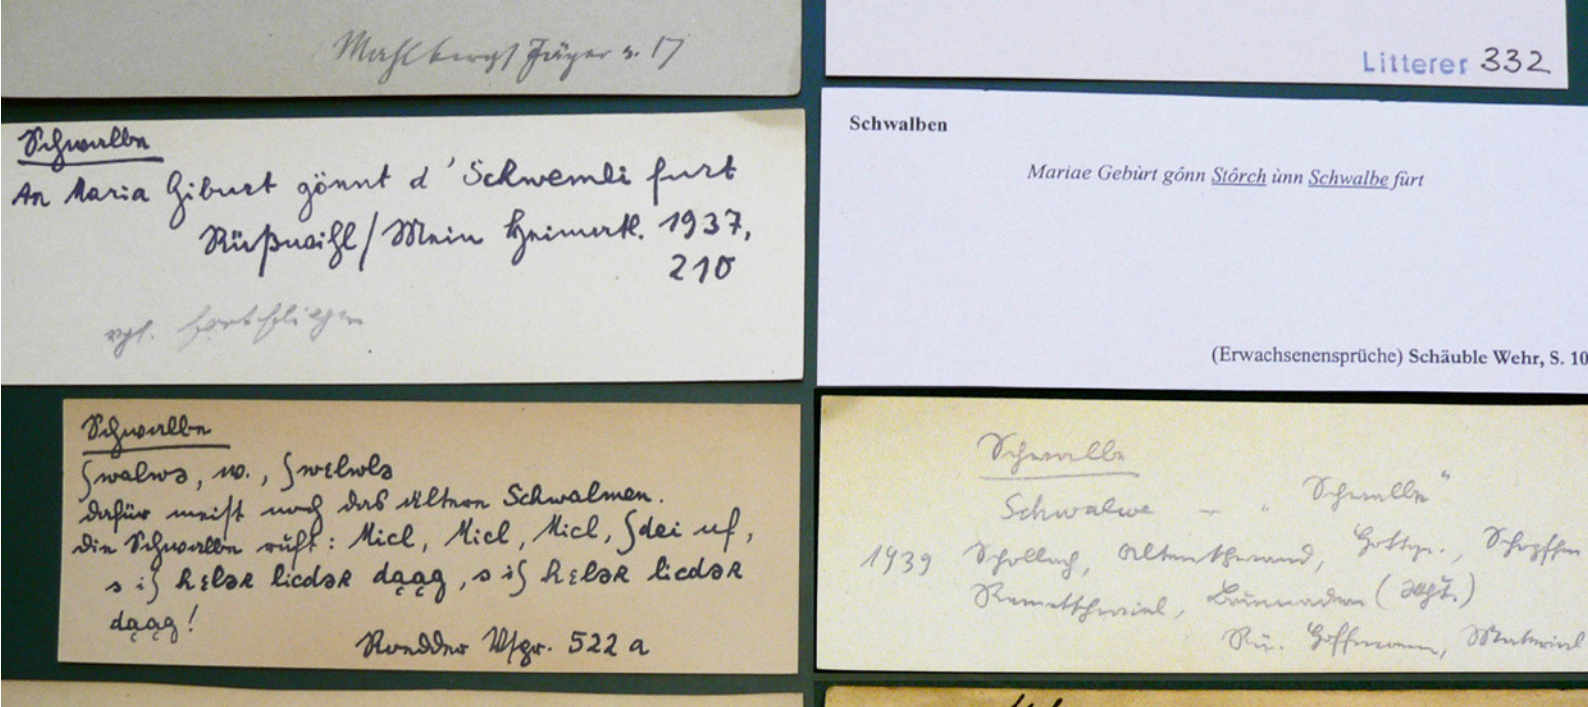 Mahlberg/Jäger s. 17
Schwalbe
An Maria Giburt gönnt d' Schwemli furt
Rüßwihl/Mein Heimatl. 1937,
210
vgl. fortfliegen
Schwalbe
ʃwalwə, w., ʃwɛlwlə
dafür meist noch das ältere Schwalmen.
die Schwalbe ruft: Micl, Micl, Micl, ʃdei uf,
s iʃ hɛləʀ licdəʀ dąąg, s iʃ hɛləʀ licdəʀ
dąąg!
Roedder Vspr. 522 a
Litterer 332
Schwalben
Mariae Gebùrt gônn Stôrch ùnn Schwalbe fùrt
(Erwachsenensprüche) Schäuble Wehr, S. 10
Schwalbe
Schwalwe – „Schwalbe“
1939 Schollach, Altenschwand,
Remetschwiel, Brunnadern
Rü. Hoffmann, Material